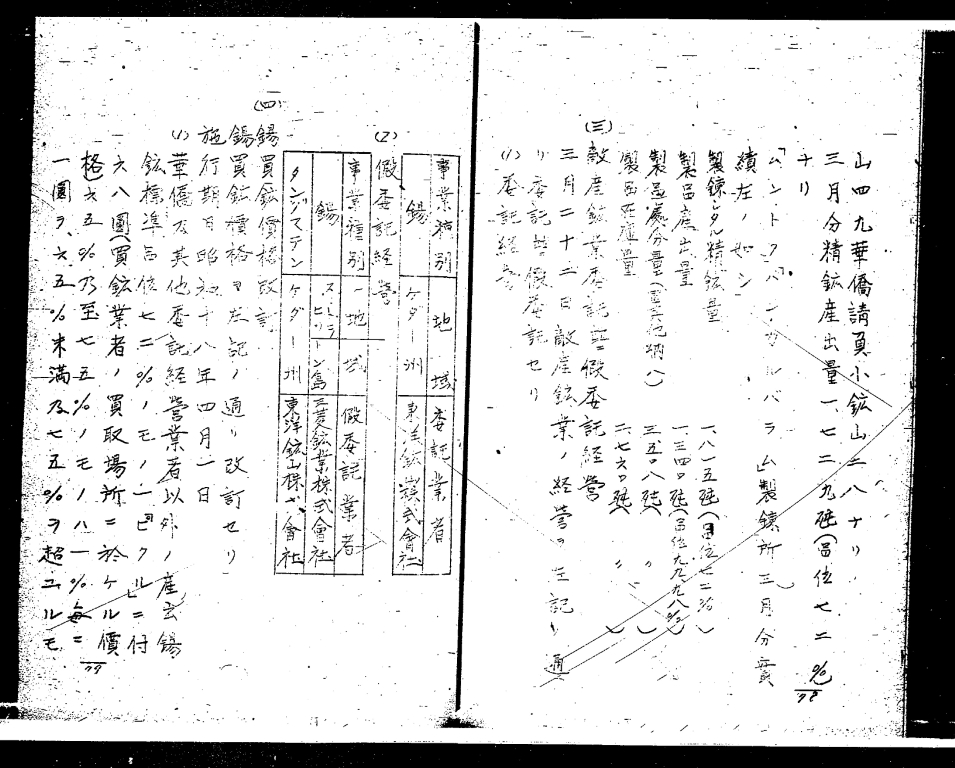 山四九華僑請負小鉱山二八ナリ、
三月分精鉱産出量一、七二九砘(品位七二%)
ナリ
「ムントアバン、カルバラ」製錬所三月分實
績左ノ如シ
製錬シタル精鉱量 一、八一五砘(品位七二%)
製品産出量 一、三四〇砘(品位九九九八%)
製品處分量 三五〇八砘( 〃 )
製品在庫量 二、七六〇砘( 〃 )
(三)
敵産鉱業委託並假委託経営
三月二十二日敵産鉱業ノ経営ヲ左記ノ通
リ委託並假委託セリ
(1) 委託経営
78
事業種別 地域 委託業者
錫 ケダー州 東洋鉱山株式會社
(2) 假委託経営
事業種別 地域 假委託業者
錫 島 三菱鉱業株式會社
タングステン ケダー州 東洋鉱山株式會社
(四)
錫買鉱價格改訂
錫買鉱價格ヲ左記ノ通リ改訂セリ
施行期日昭和十八年四月一日
(1) 華僑及其他委託経営業者以外ノ産出錫
鉱標準品位七二%ノモノ一「ピクル」ニ付
六八圓(買鉱業者ノ買取場所ニ於ケル價
格)六五%乃至七五%ノモノハ一%毎ニ
一圓ヲ六五%未満及七五%ヲ超ユルモ
79